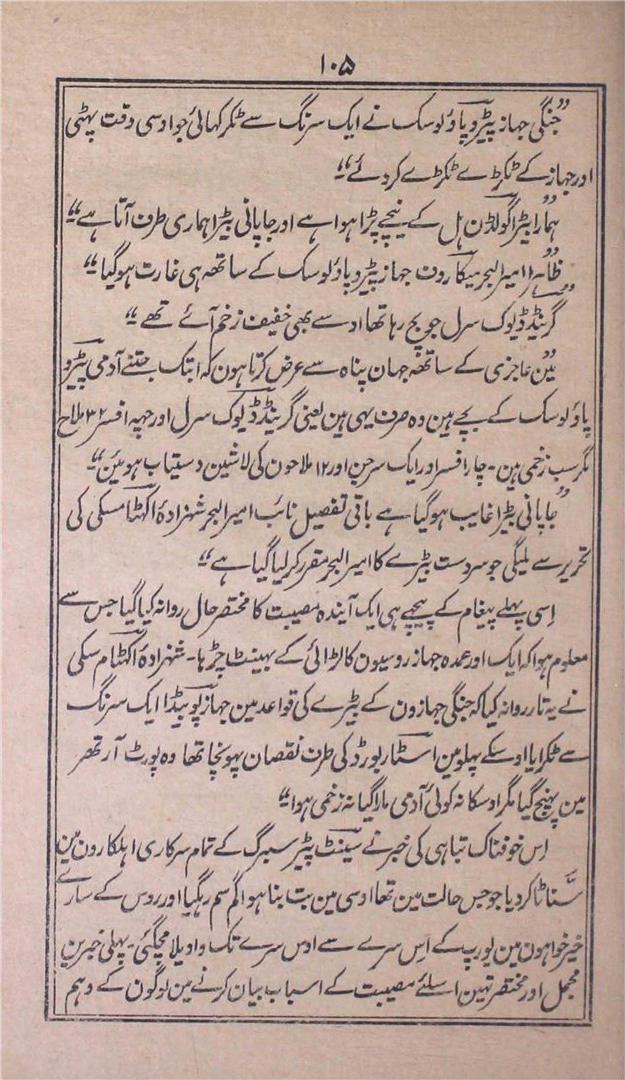 ۱۰۵
”جنگی جہاز پیٹروپاؤلوسک نے ایک سرنگ سے ٹکر کہائی جو اوسی وقت پہٹی
اور جہاز کے ٹکڑے ٹکڑے کر دئے“
”ہمارا بیڑا گولڈن ہل کے نیچے پڑا ہوا ہے اور جاپانی بیڑا ہماری طرف آتا ہے“
”ظاہرا امیر البحر میکاروف جہاز پیٹروپاؤلوسک کے ساتھہ ہی غارت ہوگیا“
”گرینڈ ڈیوک سرل جو بچ رہا تھا اوسے بھی خفیف زخم آئے تھے“
”مین عاجزی کے ساتھہ جہان پناہ سے عرض کرتا ہون کہ ابتک جتنے آدمی پیٹرو
پاؤلوسک کے بچے ہین وہ صرف یہی ہین یعنی گرینڈ ڈیوک سرل اور چہہ افسر ۳۲ ملاح
مگر سب زخمی ہین ۔ چار افسر اور ایک سرجن اور ۱۲ ملاحون کی لاشین دستیاب ہوئین“
”جاپانی بیڑا غایب ہوگیا ہے باقی تفصیل نائب امیر البحر شہزادہ اکھٹامسکی کی
تحریر سے ملیگی جو سردست بیڑے کا امیر البحر مقرر کر لیا گیا ہے“
اِسی پہلے پیغام کے پیچہے ہی ایک آیندہ مصیبت کا مختصر حال روانہ کیا گیا جس سے
معلوم ہوا کہ ایک اور عمدہ جہاز روسیون کا لڑائی کے بھینٹ چڑہا ۔ شہزادہ اکھٹام سکی
نے یہ تار روانہ کیا کہ جنگی جہازون کے بیڑے کی قواعد مین جہاز پوبیڈا ایک سرنگ
سے ٹکرایا اوسکے پہلو مین اسٹار بورڈ کی طرف نقصان پہونچا تھا وہ پورٹ آرتھر
مین پہنچ گیا مگر اوسکا نہ کوئی آدمی مارا گیا نہ زخمی ہوا“
اس خوفناک تباہی کی خبر نے سینٹ پیٹر سبرگ کے تمام سرکاری اہلکارون مین
سنّاٹا کر دیا جو جس حالت مین تھا اوسی مین بت بنا ہوا گم سم رہگیا اور روس کے سارے
خیر خواہون مین یورپ کے اِس سرے سے اوس سرے تک واویلا مچگئی ۔ پہلی خبرین
مجمل اور مختصر تہین اسلئے مصیبت کے اسباب بیان کرنے مین لوگون کے وہم